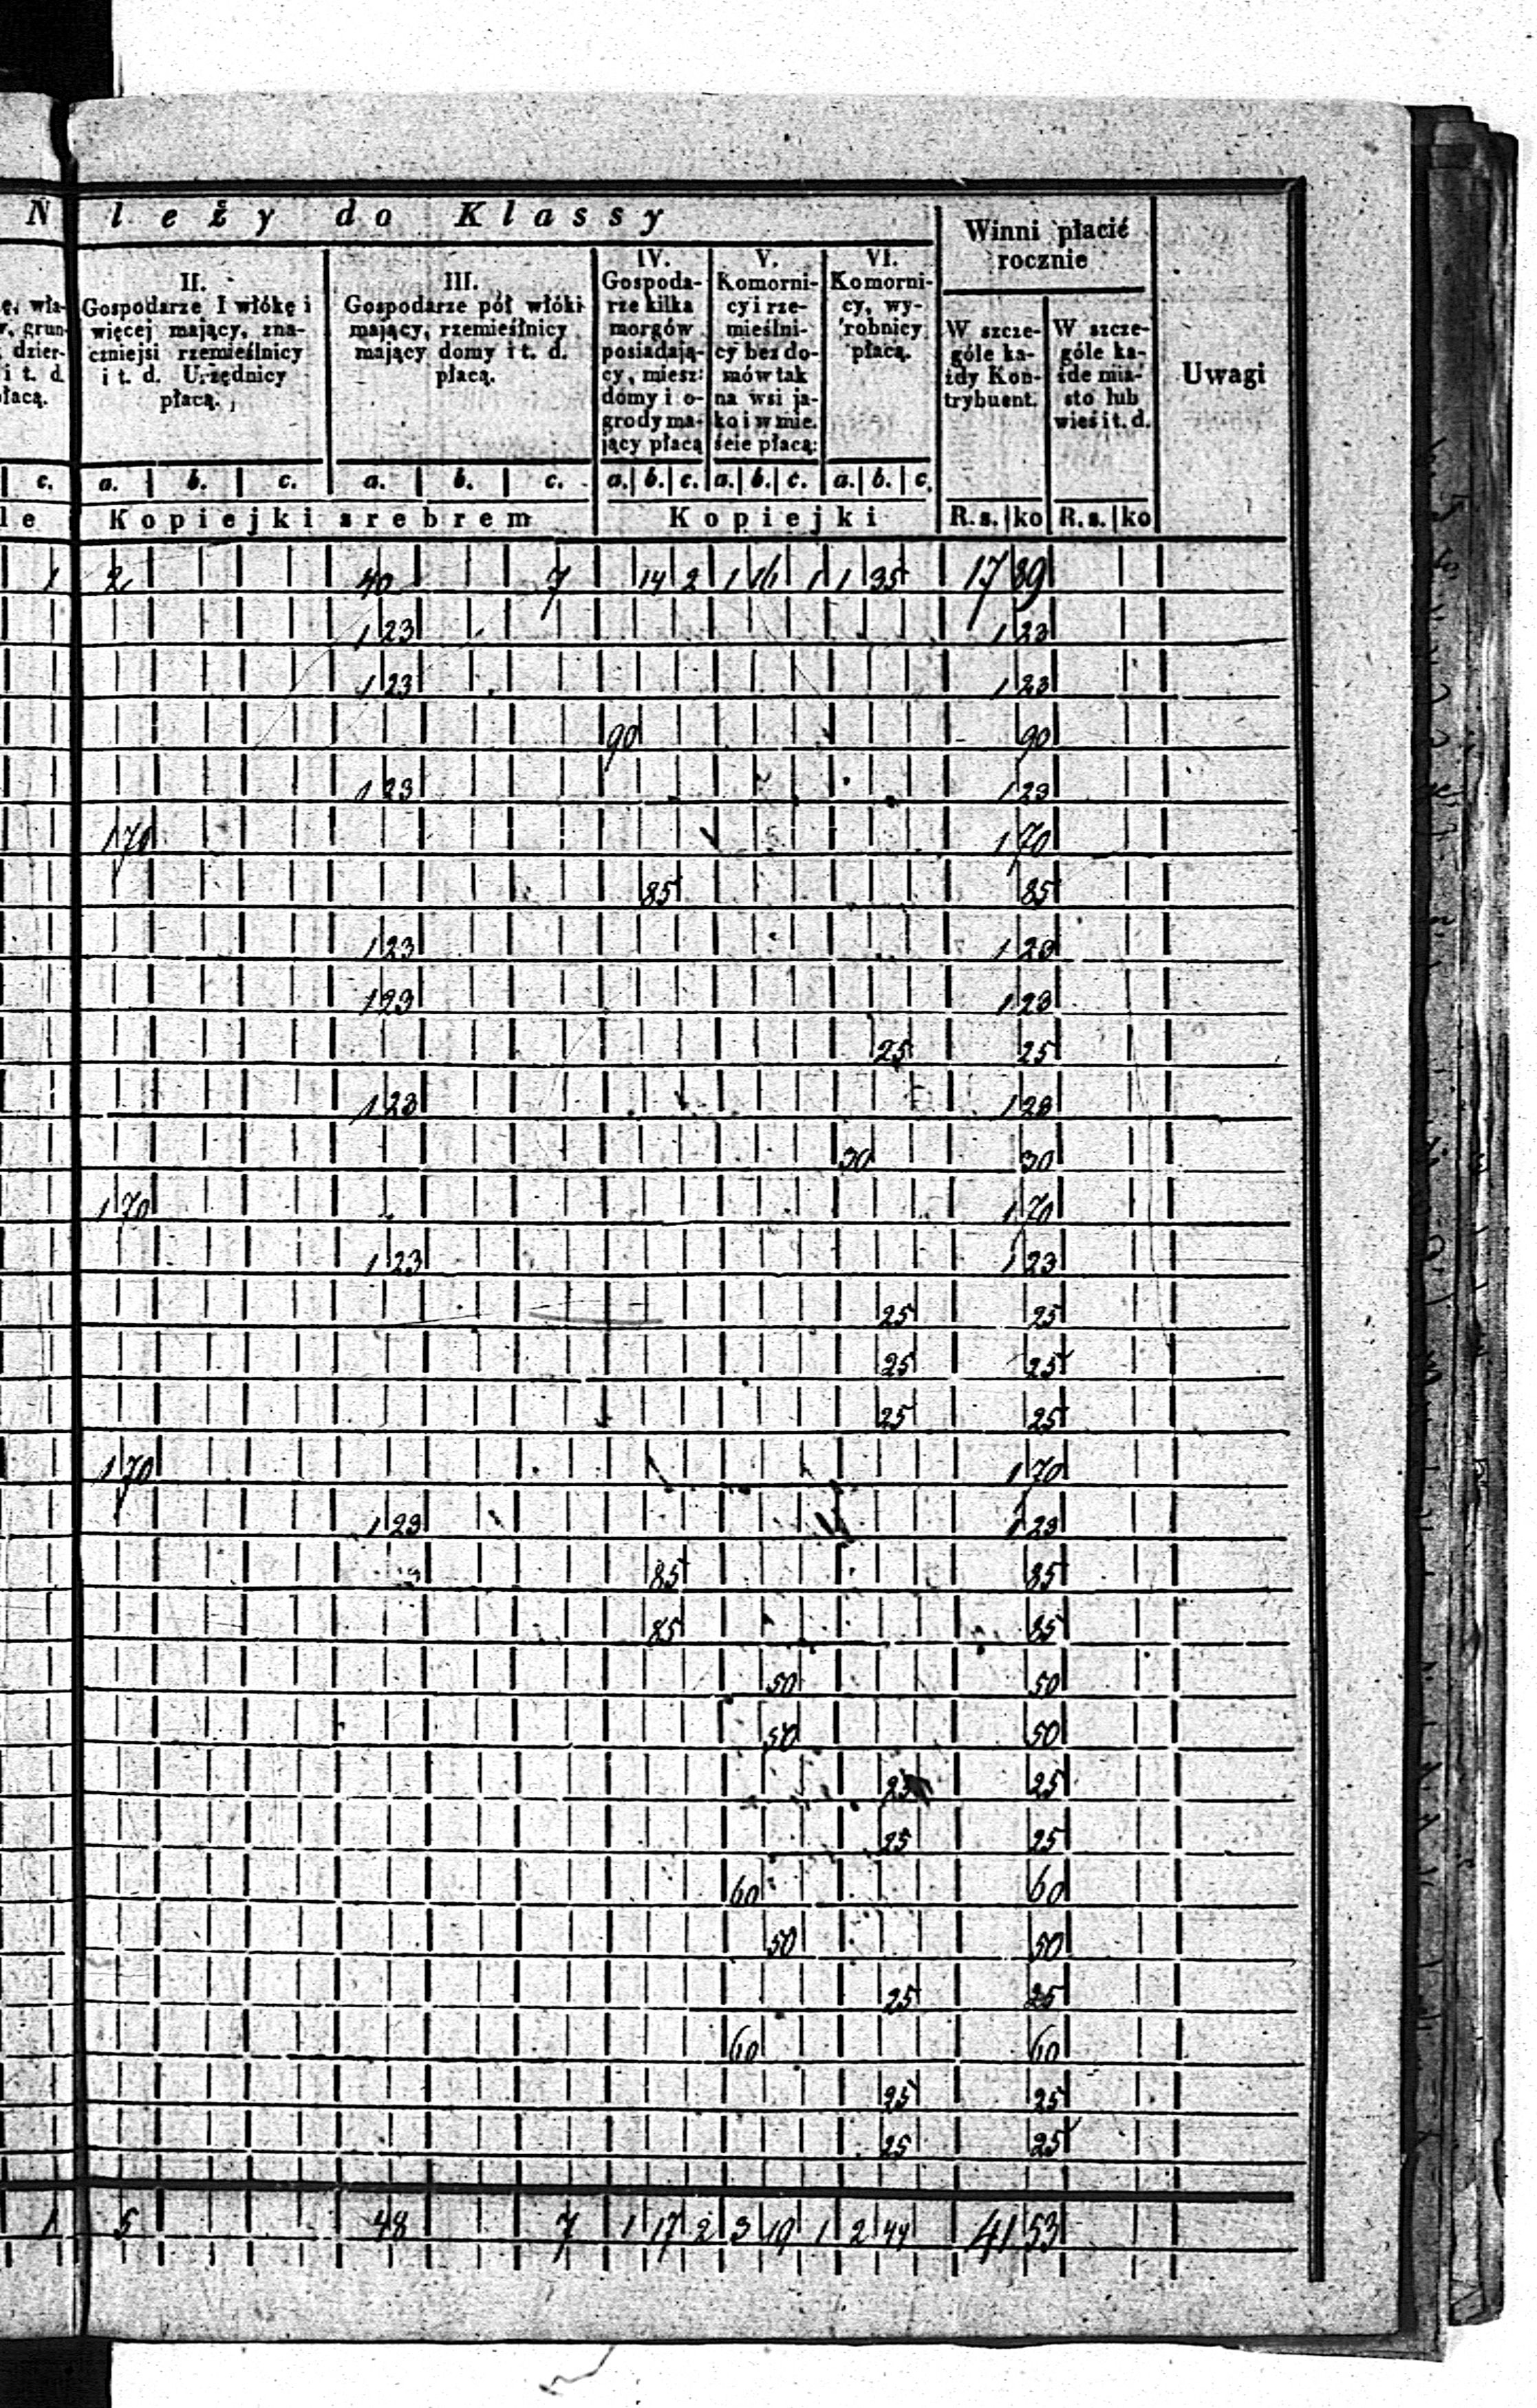 N leży do Klassy
Winni płacić
rocznie
Uwagi
ę, wła-
, grun-
dzier-
i t. d
płacą.
II.
Gospodarze I włókę i
więcej mający, zna-
czniejsi rzemieślnicy
i t. d. Urzędnicy
płacą.
III.
Gospodarze pół włóki
mający, rzemieślnicy
mający domy i t. d.
płacą.
IV.
Gospoda-
rze kilka
morgów
posiadają-
cy, miesz:
domy i o-
grody ma-
jący płacą
V.
Komorni-
cy i rze-
mieślni-
cy bez do-
mów tak
na wsi ja-
ko i w mie.
ście płacą:
VI.
Komorni-
cy, wy-
robnicy
płacą.
W szcze-
góle ka-
żdy Kon-
trybuent.
W szcze-
góle ka-
żde mia-
sto lub
wieś i t. d.
c. a. b. c. a. b. c. a. b. c. a. b. c. a. b. c.
le Kopiejki srebrem Kopiejki R.s. ko R.s. ko
1 2 40 7 14 2 1 16 1 1 35 17 89
1 23 1 23
1 23 1 23
90 90
1 23 1 23
1 70 1 70
85 85
1 23 1 23
1 23 1 23
25 25
1 23 1 23
30 30
1 70 1 70
1 23 1 23
25 25
25 25
25 25
1 70 1 70
1 23 1 23
85 85
85 85
50 50
50 50
25 25
25 25
60 60
50 50
25 25
60 60
25 25
25 25
1 5 48 7 1 17 2 3 19 1 2 44 41 53